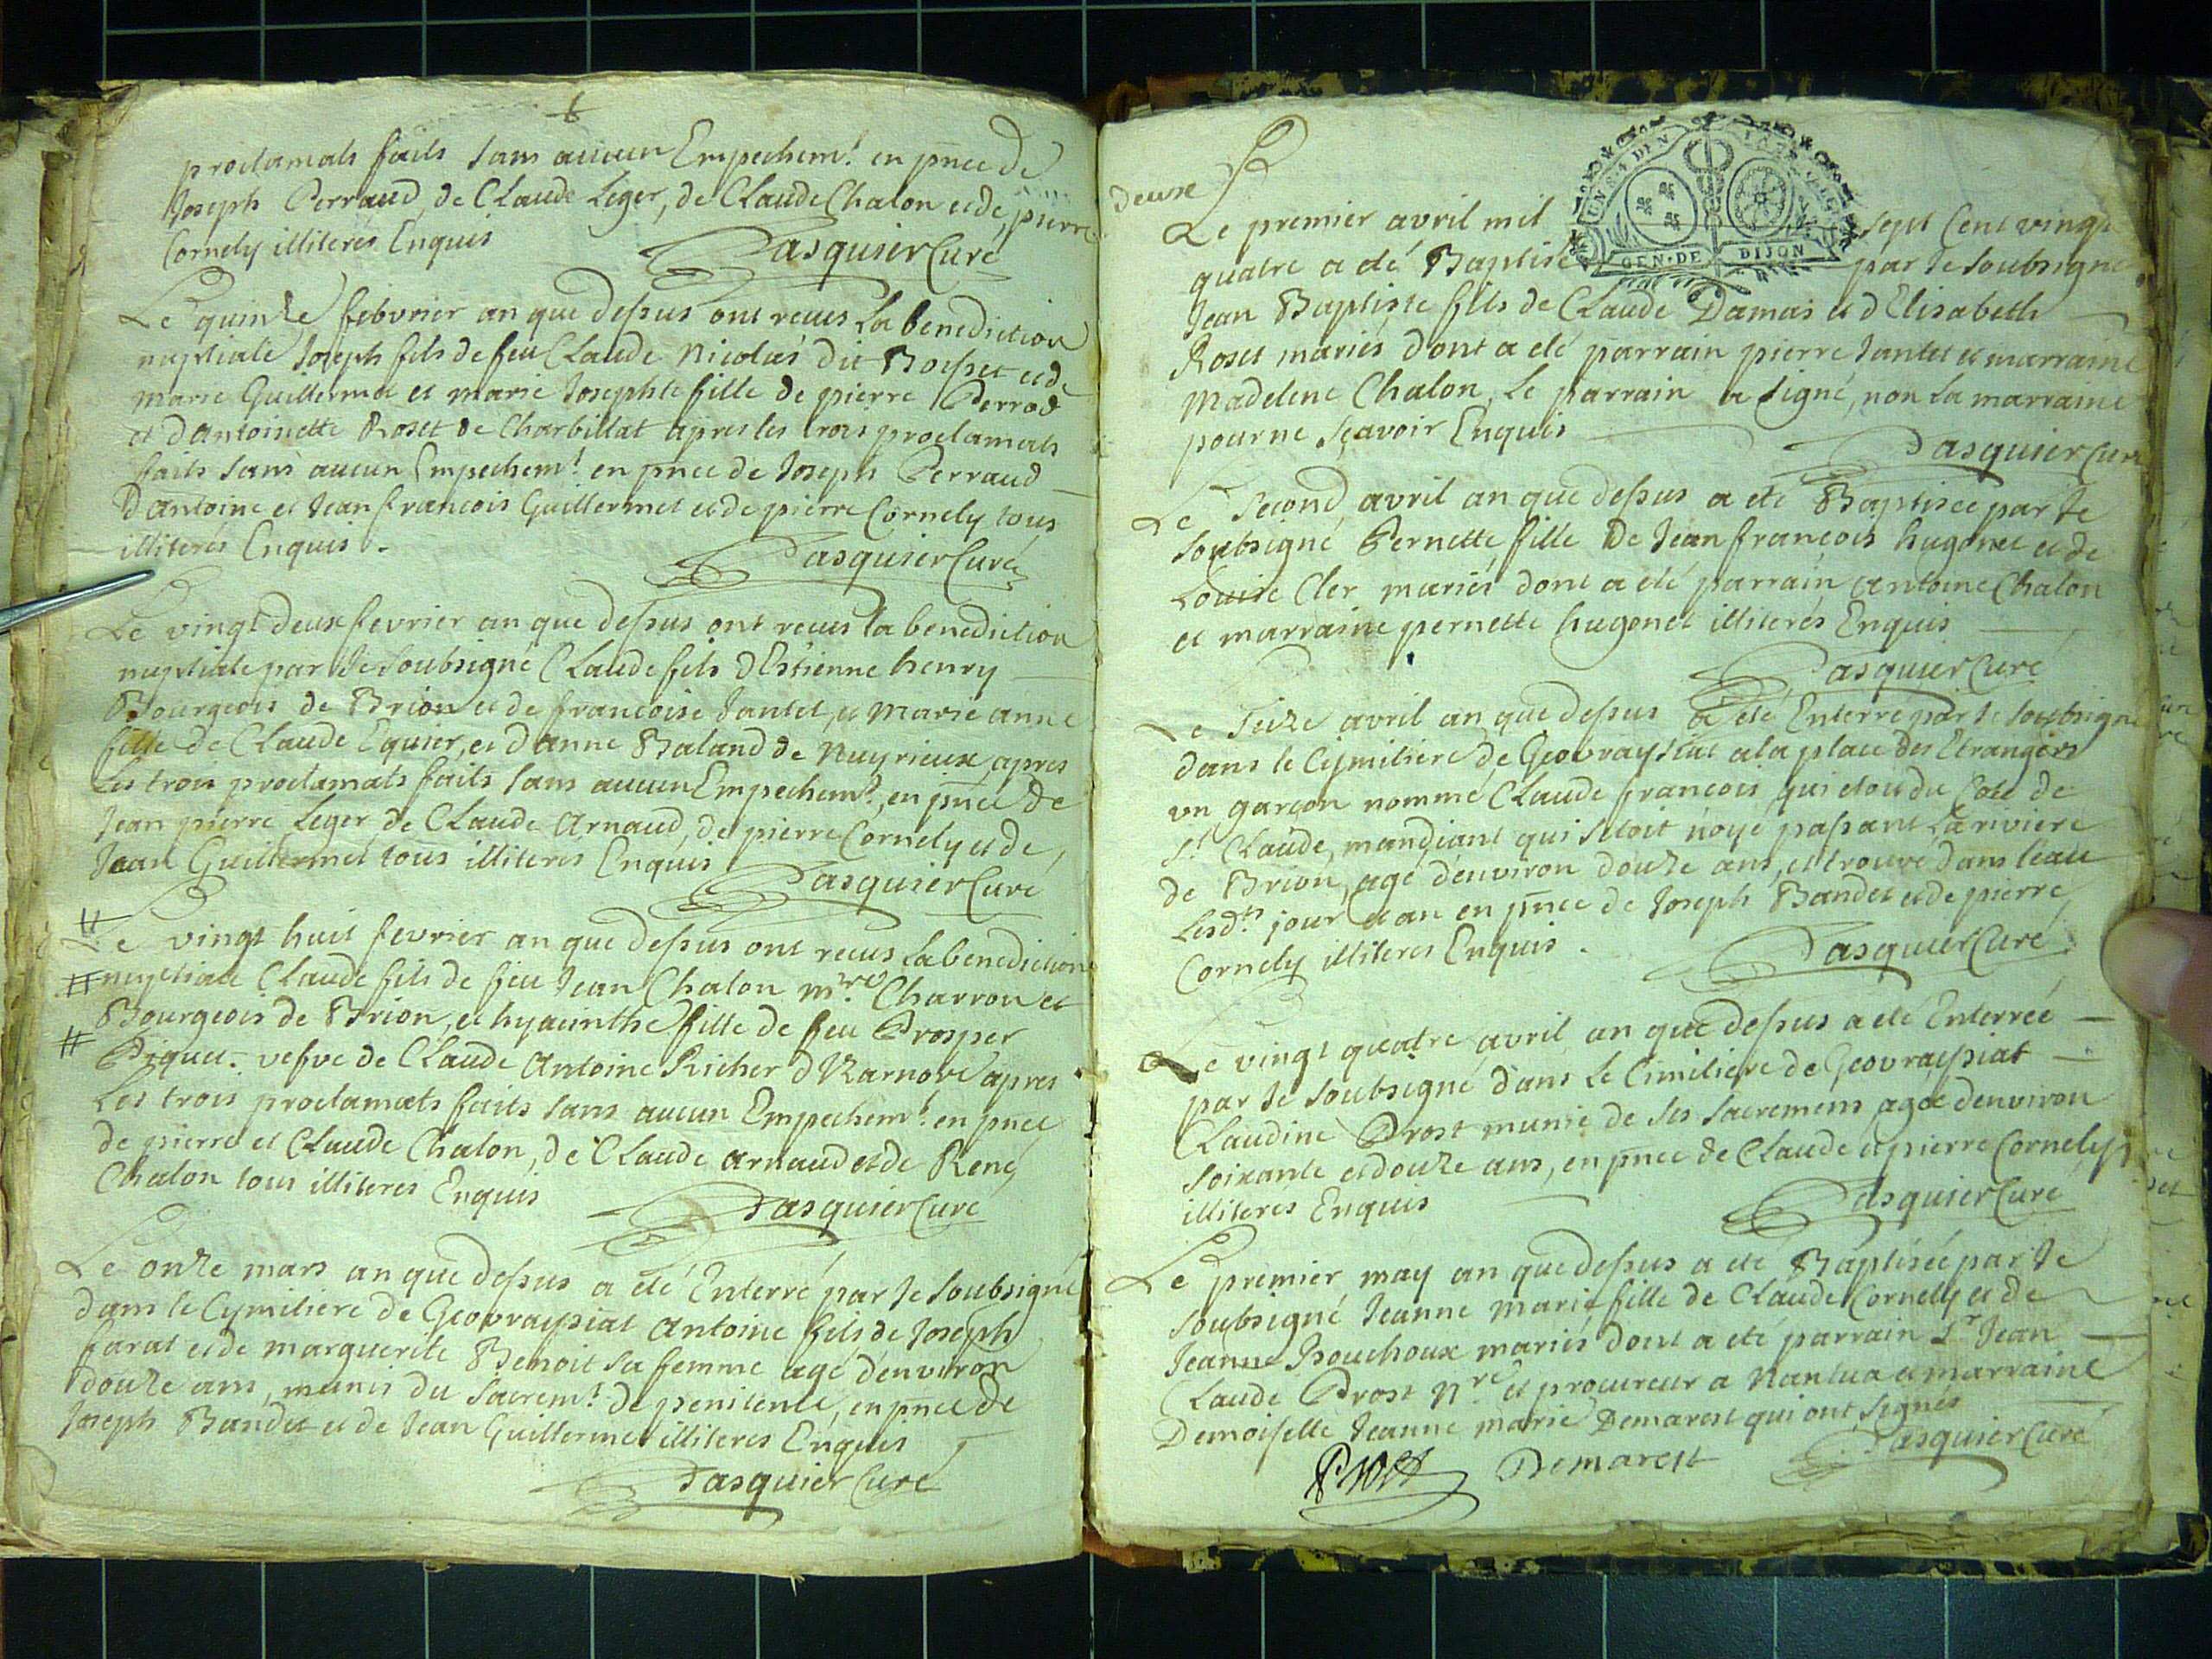 proclamats faits sans aucun Empechemt. en pnce de
Joseph Perraud, de Claude Leger, de Claude Chalon et de, pierre
Cornely illiterés Enquis
Pasquier Curé
Le quinze febvrier an que dessus ont recus La benediction
nuptiale Joseph fils de feu Claude Nicolas dit Boisset et de
marie Guillermet et marie Josephte fille de pierre Perrod
et d'Antoinette Roset de Charbillat apres les trois proclamats
faits sans aucun Empechemt. en pnce de Joseph Perraud
D'Antoine et Jean francois Guillermet et de pierre Cornely tous
illiterés Enquis.
Pasquier Curé
Le vingt deux fevrier an que dessus ont recus la benediction
nuptiale par Je Soubsigné Claude fils d'Estienne henry
Bourgeois de Brion et de francoise Jantet, et Marie anne
fille de Claude Equier, et d'anne Baland de Nuyrieux, apres
Les trois proclamats faits sans aucun Empechemt., en pnce de
Jean pierre Leger de Claude Arnaud, de pierre Cornely et de,
Jean Guillermet tous illiterés Enquis
Pasquier Curé
Le vingt huit fevrier an que dessus ont recus La benediction
nuptiale Claude fils de feu Jean Chalon mre. Charron et
Bourgeois de Brion, et hyacinthe fille de feu Prosper
Piquet. vefve de Claude Antoine Richer d'Narnove apres
Les trois proclamats faits sans aucun Empechemt. en pnce
de pierre et Claude Chalon, de Claude Arnaud et de René,
Chalon tous illiteres Enquis
Pasquier Curé
Le onze mars an que dessus a été Enterré par Je Soubsigné
dans le Cymitiere de Geovraysiat Antoine fils de Joseph
farat et de marguerite Benoit sa femme agé d'environ
douze ans, munis du Sacremt. de penitence, en pnce de
Joseph Bandet et de Jean Guillermet illiteres Enquis
Pasquier Curé
deuxe
UN S. 4. DEN
GEN. DE DIJON
Le premier avril mil sept Cent vingt
quatre a eté Baptisé par Je Soubsigné
Jean Baptiste fils de Claude Damas et d'Elisabeth
Roset mariés dont a eté parrain pierre Jantet et marraine
Madelene Chalon, Le parrain a signé, non la marraine
pour ne sçavoir Enquis
Pasquier Curé
Le Second avril an que dessus a eté Baptisée par Je
Soubsigné Pernette fille De Jean francois hugonet et de
Louise Cler mariés dont a eté parrain Antoine Chalon
et marraine pernette hugonet illiterés Enquis
Pasquier Curé
Le Seize avril an que dessus a eté Enterré par Je Soubsigné
dans le Cymitiere de Geovraysiat a la place des Etrangers
un garcon nommé Claude francois qui etoit du Coté de
St. Claude, mandiant qui s'etoit noyé passant La riviere
de Brion, agé d'environ douze ans, et trouvé dans l'eau
Lesdts. jour et an en pnce de Joseph Bandet et de pierre
Cornely illiteres Enquis.
Pasquier Curé
Le vingt quatre avril an que dessus a eté Enterrée
par Je soubsigné dans Le Cimitiere de Geovraysiat
Claudine Prost munie de ses Sacremens agée d'environ
soixante et douze ans, en pnce de Claude et pierre Cornely
illiterés Enquis
Pasquier Curé
Le premier may an que dessus a eté Baptisée par Je
Soubsigné Jeanne Marie fille de Claude Cornelly et de
Jeanne Bouchoux mariés dont a eté parrain Sr. Jean
Claude Prost Nre. et procureur a Nantua et marraine
Demoiselle Jeanne marie Demarest qui ont signés
Pasquier Curé
Prost Demarest